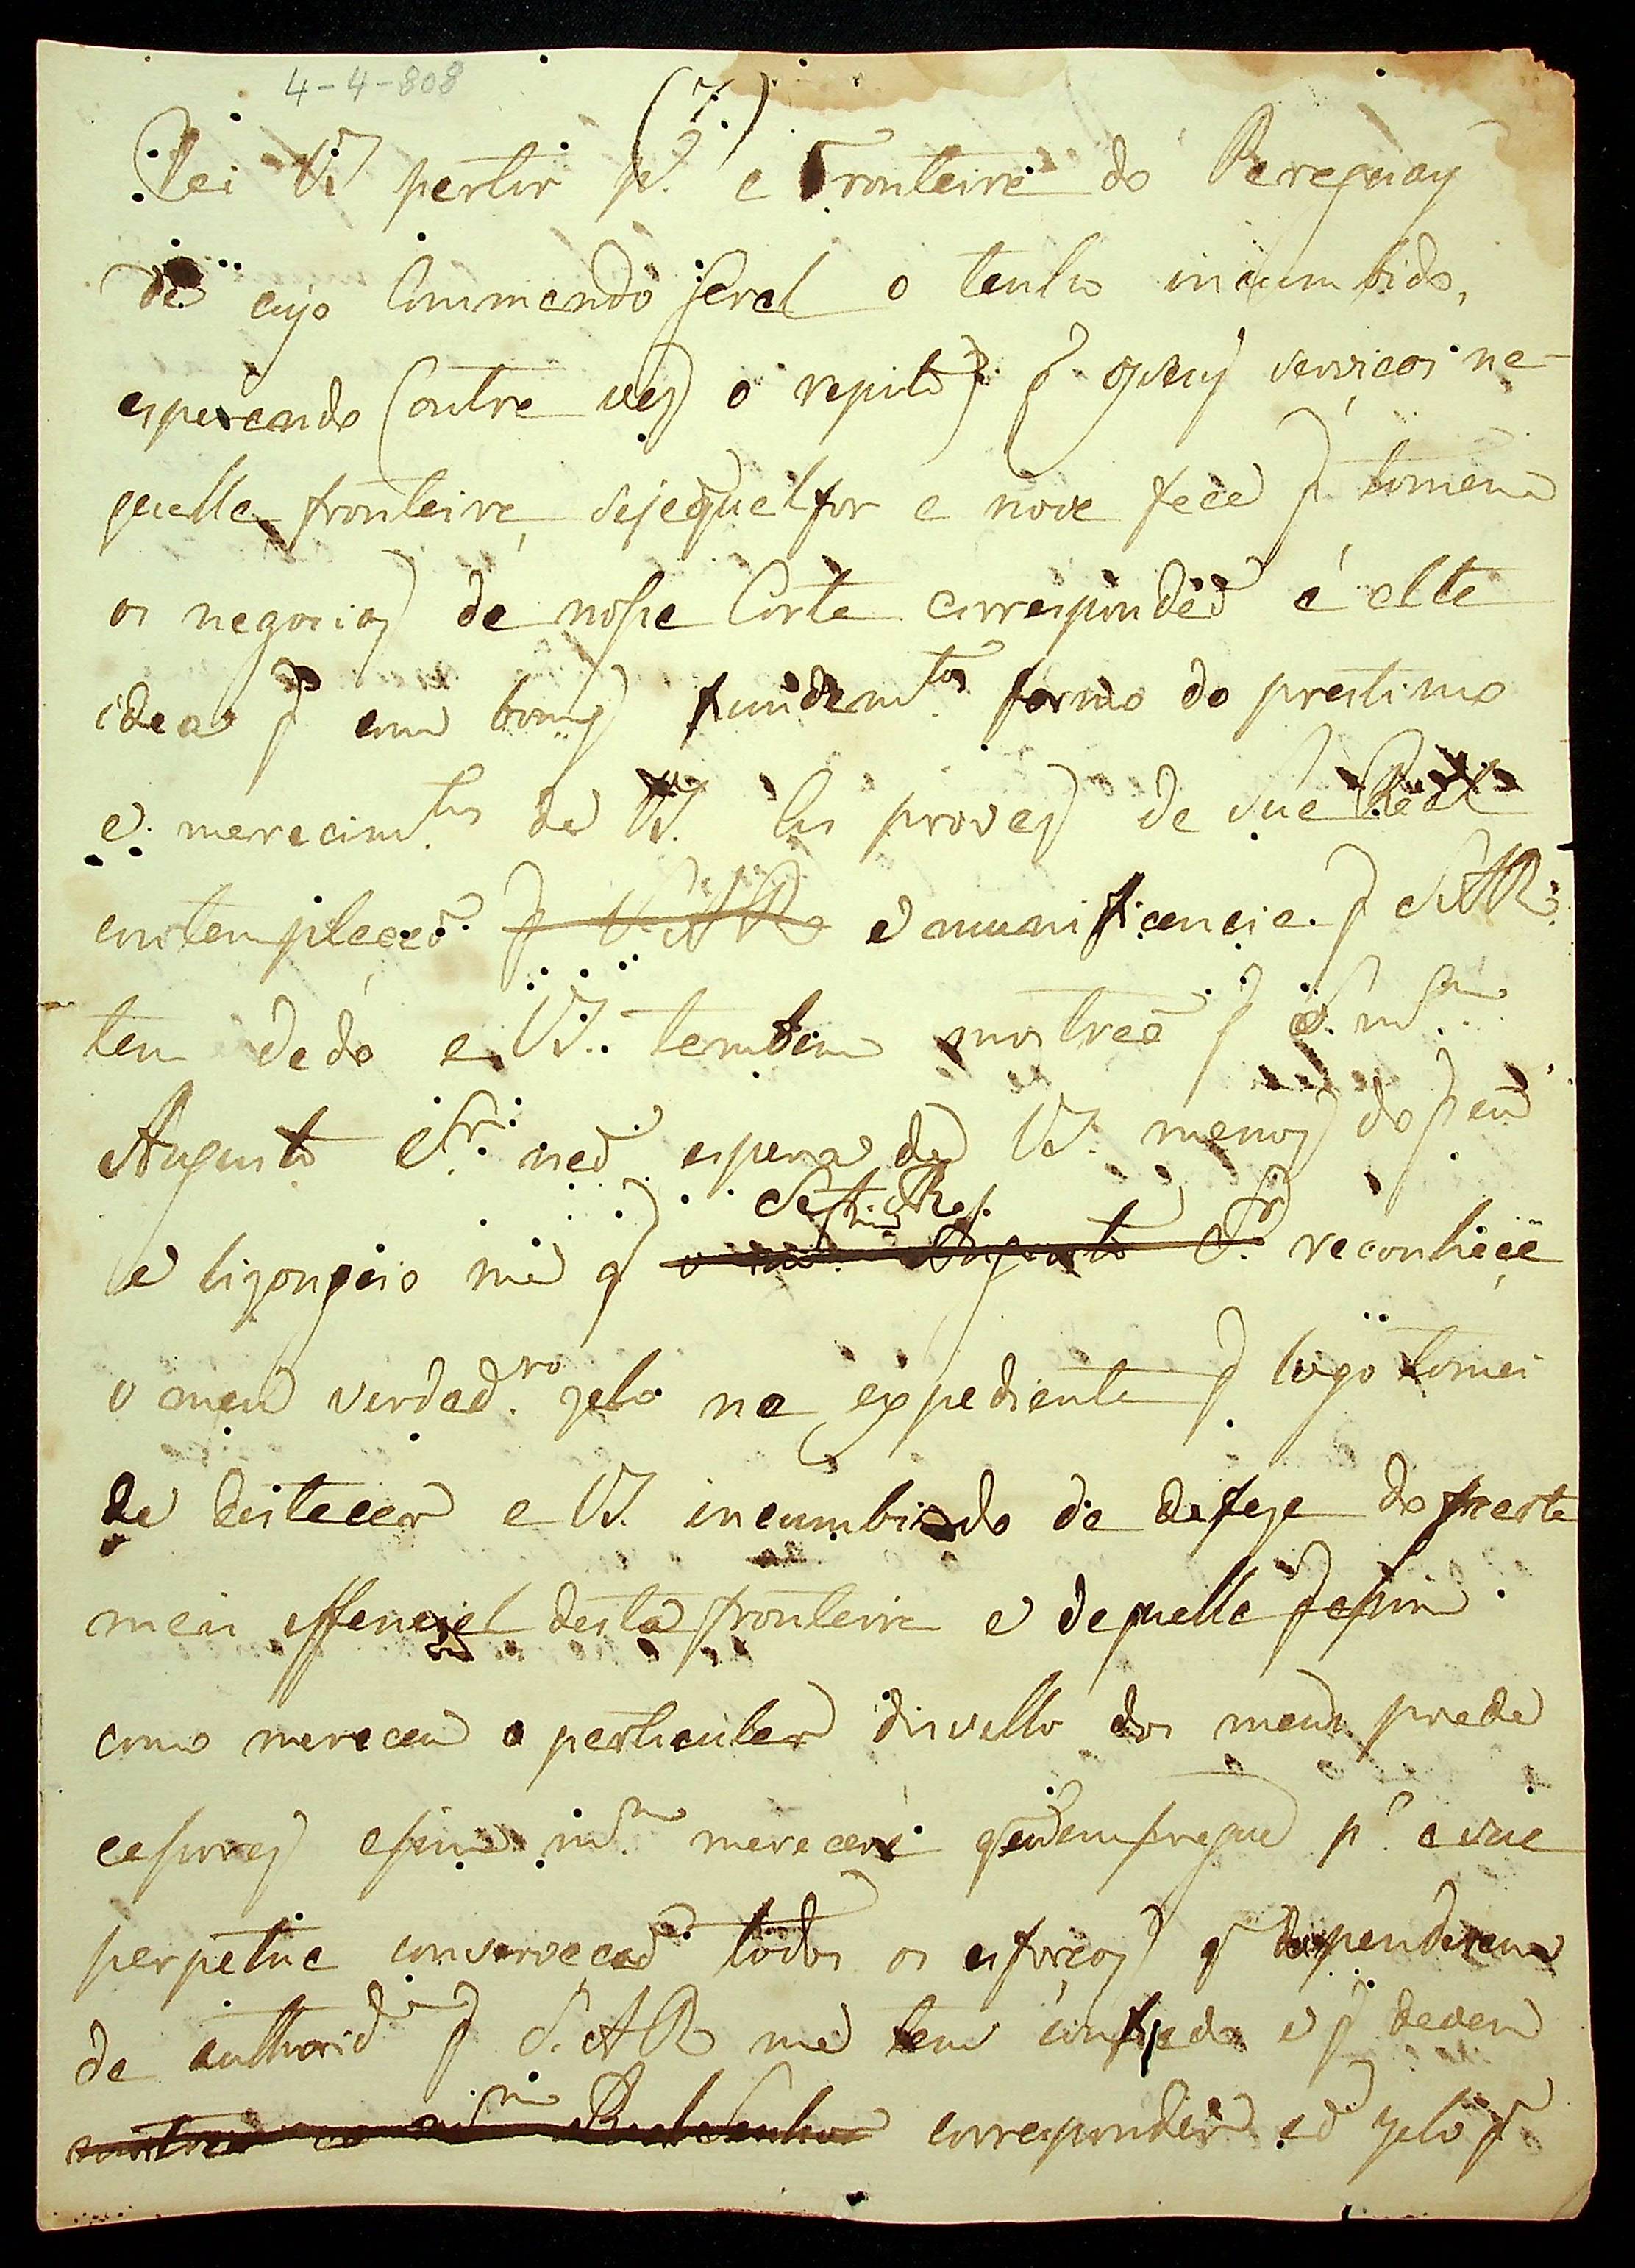 4-4-808
(7.)
Vai VS partir p.ª a Fronteira do Paraguay
de cujo Commando Geral o tenho incumbido,
esperando (outra vez o repito) q os seus serviços na-
quella fronteira, seja qual for a nova face q tomem
os negocios da nossa Corte correspondaõ á alta
idea q com bons fundam.tos formo do prestimo
e merecim.tos de VS. As provas de sua Real
contemplaçaõ q S. A R e munificencia q S.A.R.
tem dado a VS. tambem mostraõ q o m.mo
Augusto Sr. naõ espera de VS. menos do q eu
S. A. R.
e lizongeio me q o mmo Augusto Sr. reconhece
o meu verdad.ro zelo na expediente q logo tomei
de destacar a VS. incumbindo da defeza da parte
mais essencial desta fronteira e daquella q assim
como mereceu o particular disvello dos meus prede
cessores assim m.mo merecerá q eu empregue p.ª a sua
perpetua conservaçaõ todos os esforços q dependerem
da authorid.e q S. A R me tem confiado e q devem
mostrar ao m.mo Real Senhor corresponder ao zelo q